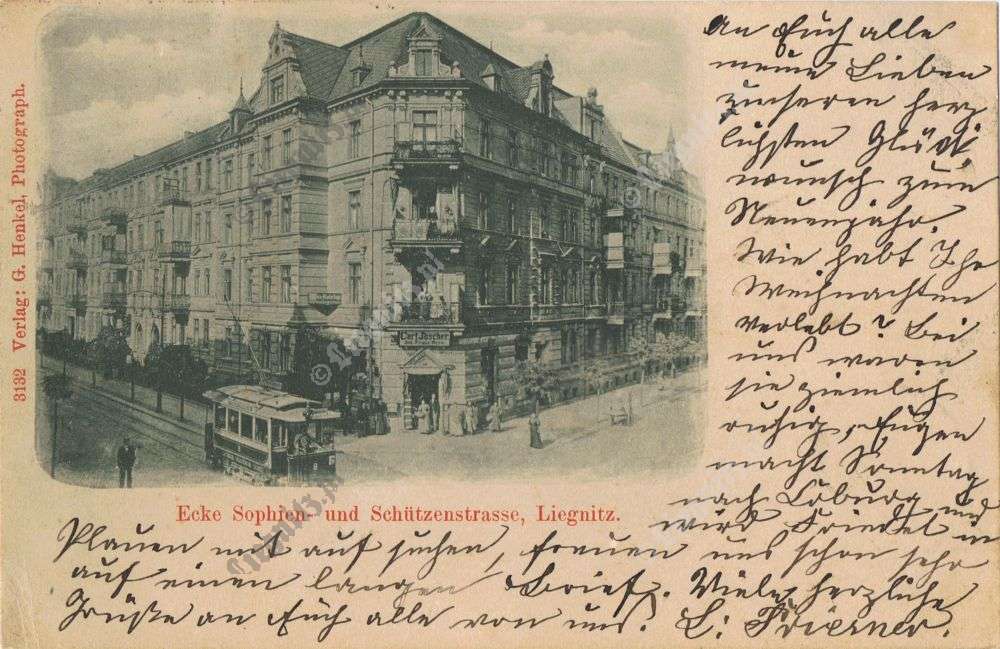 3132 Verlag: G. Henkel, Photograph.
Carl Jäscher
Ecke Sophien- und Schützenstrasse, Liegnitz.
An Euch alle
meine Lieben
unseren herz
lichsten Glück
wunsch zum
Neuenjahr.
Wie habt Ihr
Weihnachten
verlebt? Bei
uns waren
sie ziemlich
ruhig, Eugen
macht Sonntag
nach Coburg und
wird Friedel in
Plauen mit auf suchen, freuen uns schon sehr
auf einen langen Brief. Viele herzliche
Grüße an Euch alle von uns. L: